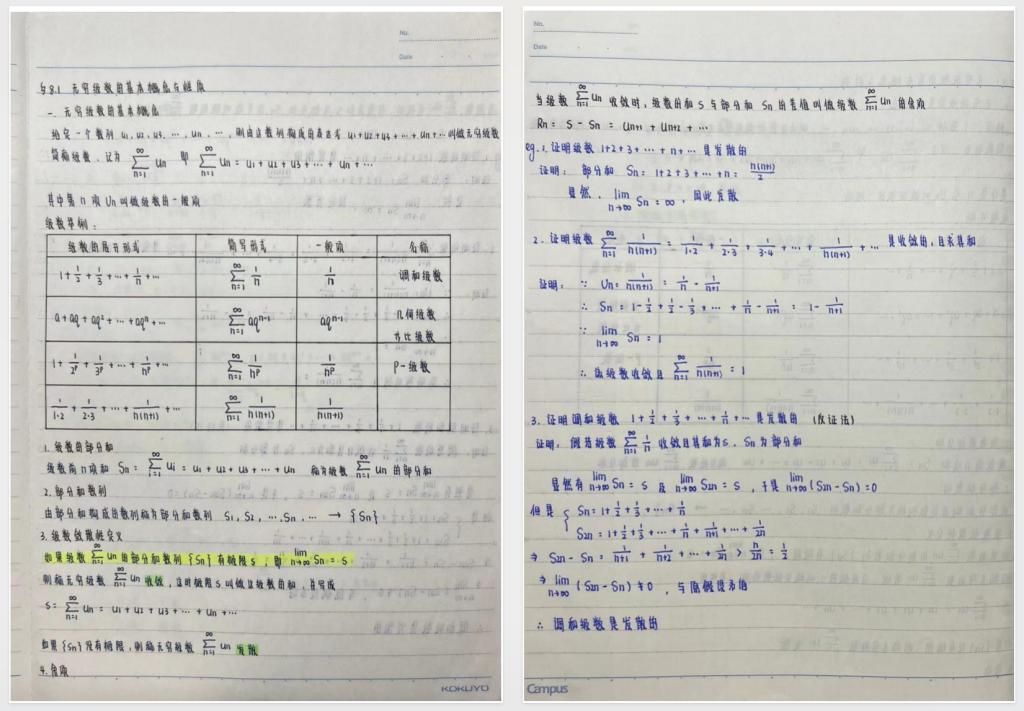 No.
Date
§8.1 无穷级数的基本概念与性质
一. 无穷级数的基本概念
给定一个数列 u₁, u₂, u₃, ⋯, un, ⋯, 则由这数列构成的表达式 u₁+u₂+u₃+⋯+un+⋯叫做无穷级数
简称级数, 记为 ∑_{n=1}^{∞} un 即 ∑_{n=1}^{∞} un = u₁+u₂+u₃+⋯+un+⋯
其中第n项 Un叫做级数的一般项
级数举例:
级数的展开形式 简写形式 一般项 名称
1+1/2+1/3+⋯+1/n+⋯ ∑_{n=1}^{∞} 1/n 1/n 调和级数
a+aq+aq²+⋯+aqⁿ+⋯ ∑_{n=1}^{∞} aqⁿ⁻¹ aqⁿ⁻¹ 几何级数
等比级数
1+1/2ᵖ+1/3ᵖ+⋯+1/nᵖ+⋯ ∑_{n=1}^{∞} 1/nᵖ 1/nᵖ P-级数
1/(1·2)+1/(2·3)+⋯+1/(n(n+1))+⋯ ∑_{n=1}^{∞} 1/(n(n+1)) 1/(n(n+1))
1. 级数的部分和
级数前n项和 Sn = ∑_{i=1}^{∞} Ui = u₁+u₂+u₃+⋯+un 称为级数 ∑_{n=1}^{∞} un 的部分和
2. 部分和数列
由部分和构成的数列称为部分和数列 S₁, S₂, ⋯, Sn ⋯ → {Sn}
3. 级数敛散性定义
如果级数 ∑_{n=1}^{∞} un 的部分和数列 {Sn} 有极限s, 即 lim_{n→∞} Sn = s
则称无穷级数 ∑_{n=1}^{∞} un 收敛, 这时极限s叫做这级数的和, 并写成
s = ∑_{n=1}^{∞} un = u₁+u₂+u₃+⋯+un+⋯
如果{Sn}没有极限, 则称无穷级数 ∑_{n=1}^{∞} un 发散
4. 余项
KOKUYO
No.
Date
当级数 ∑_{n=1}^{∞} un 收敛时, 级数的和 s 与部分和 Sn 的差值叫做级数 ∑_{n=1}^{∞} un 的余项
Rn = s - Sn = un+1 + un+2 + ⋯
eg. 1. 证明级数 1+2+3+⋯+n+⋯ 是发散的
证明: 部分和 Sn = 1+2+3+⋯+n = n(n+1)/2
显然, lim_{n→∞} Sn = ∞, 因此发散
2. 证明级数 ∑_{n=1}^{∞} 1/(n(n+1)) = 1/(1·2) + 1/(2·3) + 1/(3·4) + ⋯ + 1/(n(n+1)) + ⋯ 是收敛的, 且求其和
证明: ∵ Un = 1/(n(n+1)) = 1/n - 1/(n+1)
∴ Sn = 1-1/2+1/2-1/3+⋯+1/n-1/(n+1) = 1-1/(n+1)
∵ lim_{n→∞} Sn = 1
∴ 该级数收敛且 ∑_{n=1}^{∞} 1/(n(n+1)) = 1
3. 证明调和级数 1+1/2+1/3+⋯+1/n+⋯ 是发散的 (反证法)
证明: 假若级数 ∑_{n=1}^{∞} 1/n 收敛且其和为s. Sn为部分和
显然有 lim_{n→∞} Sn = s 及 lim_{n→∞} S2n = s, 于是 lim_{n→∞} (S2n-Sn)=0
但是 { Sn = 1+1/2+1/3+⋯+1/n
S2n = 1+1/2+1/3+⋯+1/n+1/(n+1)+⋯+1/2n
⇒ S2n-Sn = 1/(n+1) + 1/(n+2) + ⋯ + 1/2n > n/2n = 1/2
⇒ lim_{n→∞} (S2n-Sn) ≠ 0, 与原假设矛盾
∴ 调和级数是发散的
Campus